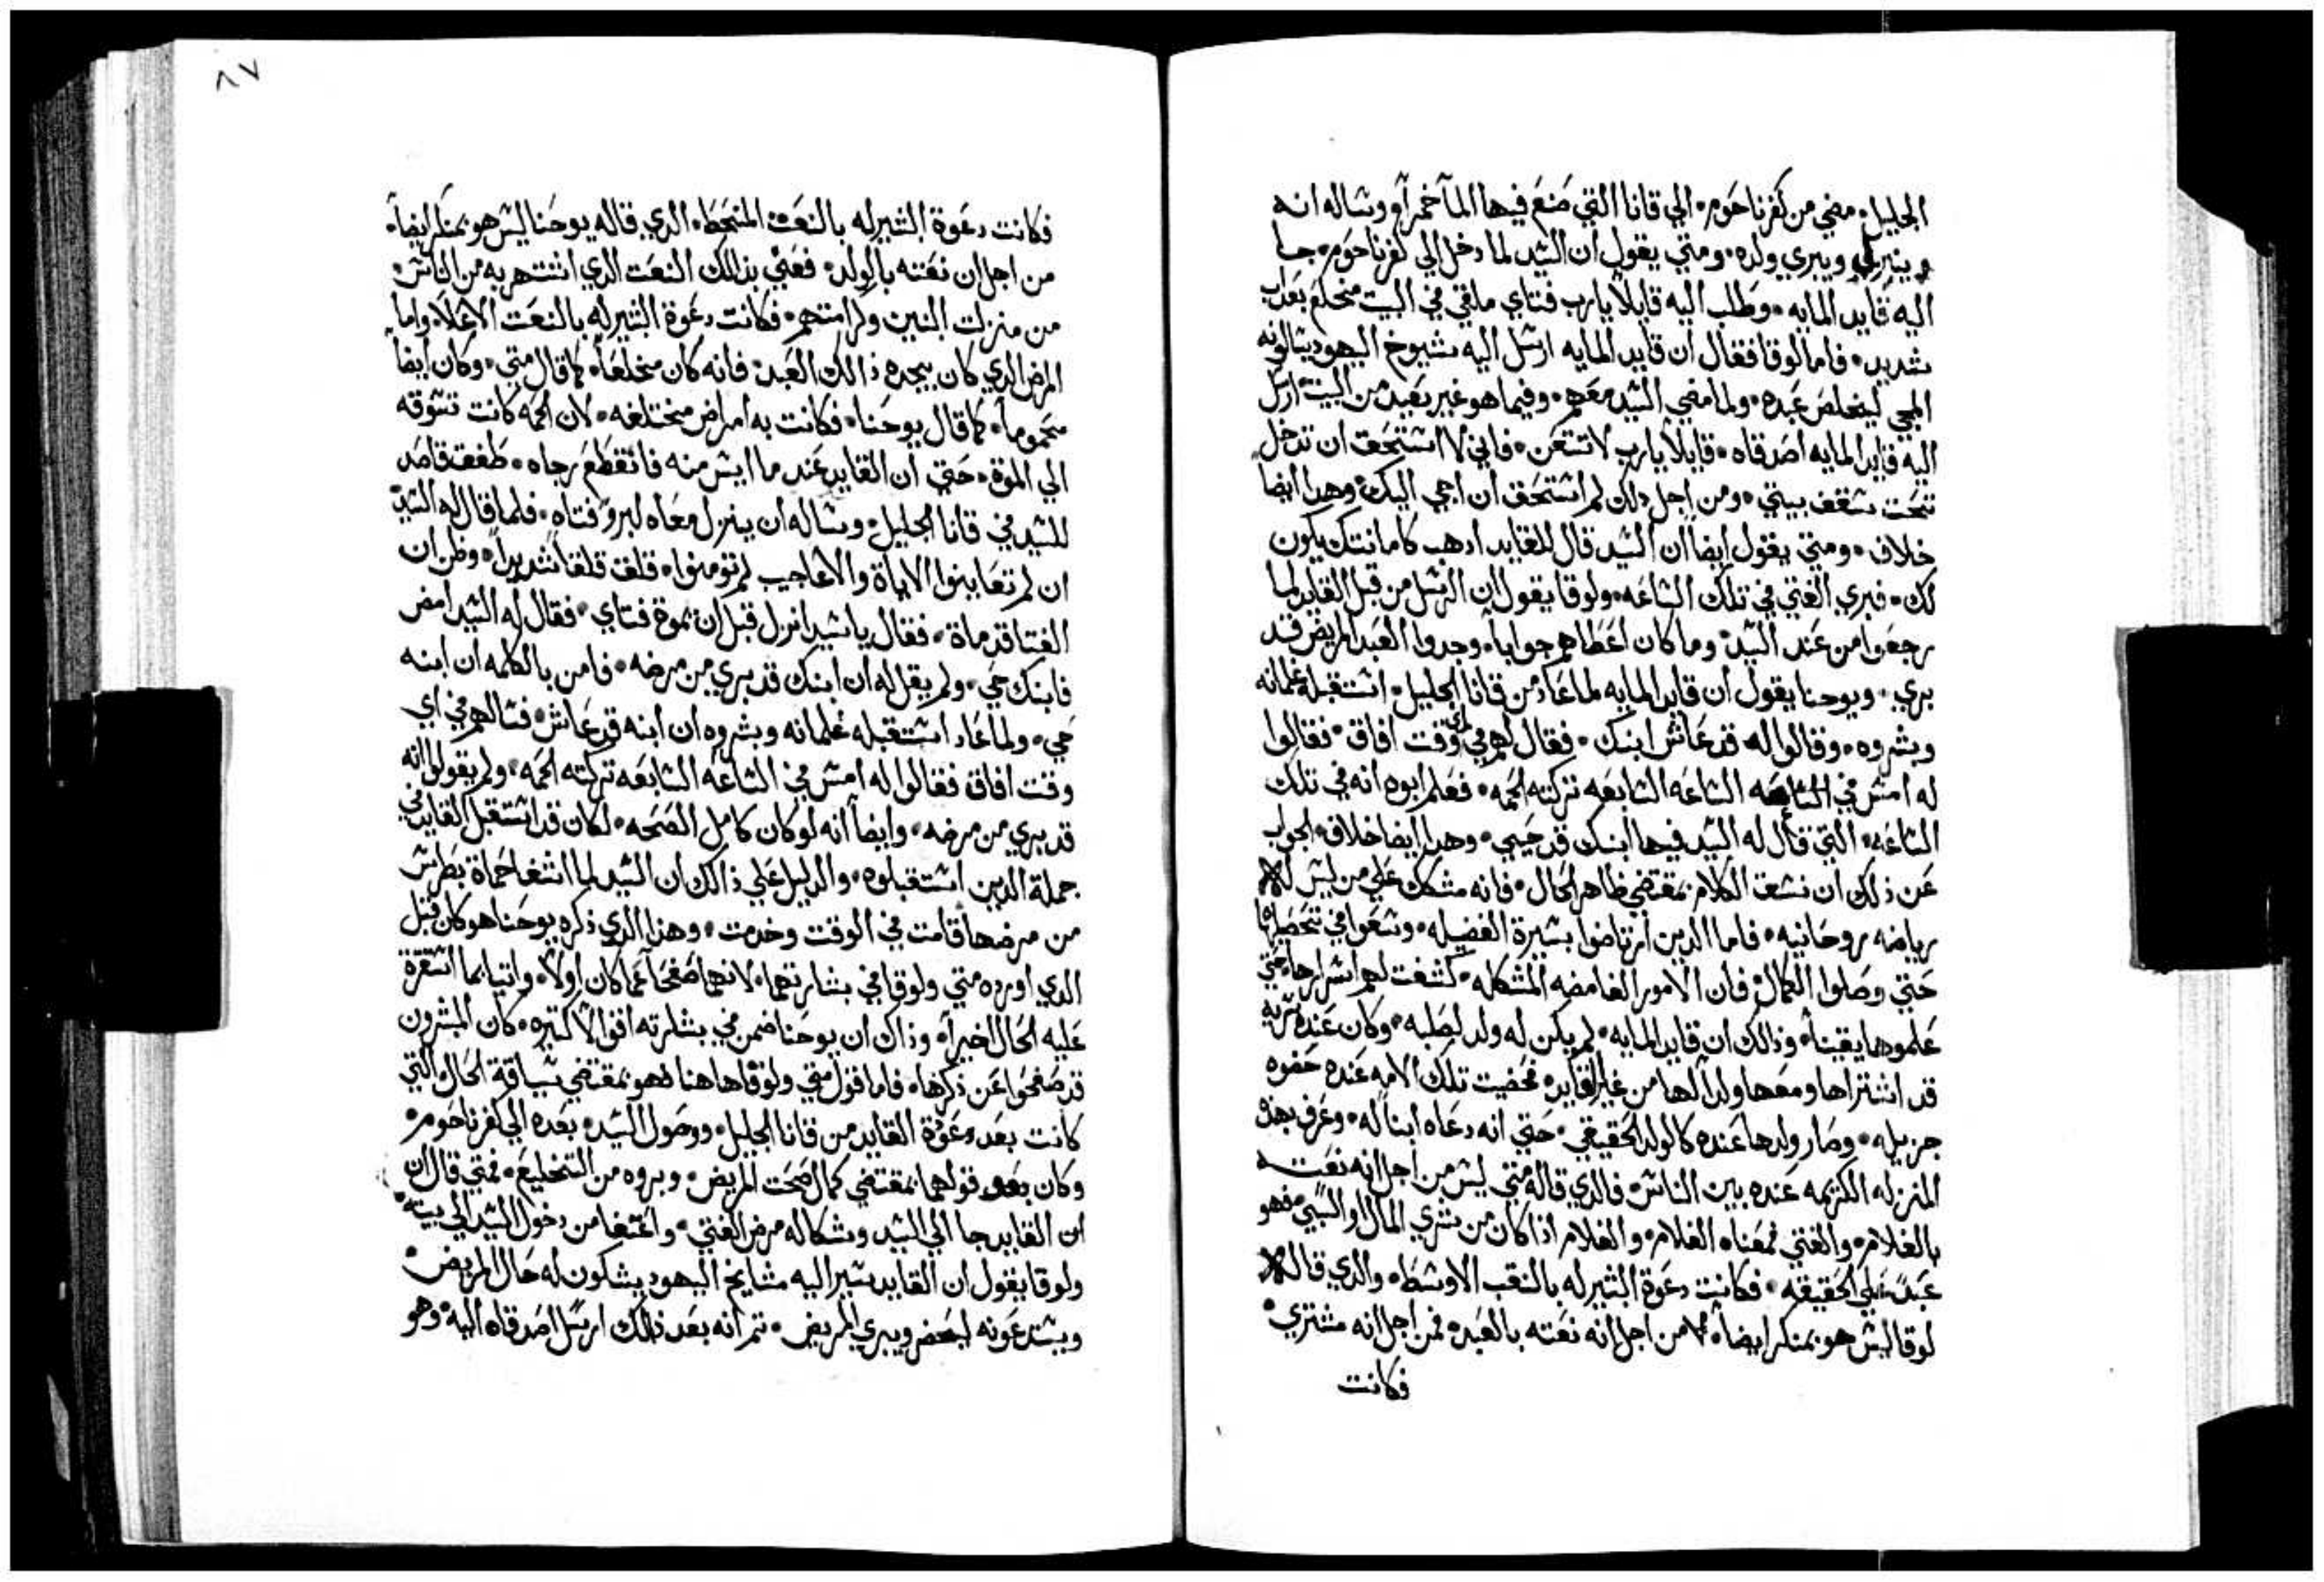 الجليل۰ مضي من كفرناحوم۰ الي قانا التي صنع فيها المآ خمراً۰ وساله انه
وينزل ويبري ولده۰ ومتي يقول ان السيد لما دخل الي كفرناحوم۰ جا
اليه قايد المايه۰ وطلب اليه قايلاً يارب فتاي ملقي في البيت مخلع بعداب
شديد۰ فاما لوقا فقال ان قايد المايه ارسل اليه شيوخ اليهود يسالونه
المجي ليخلص عبده۰ ولما مضي السيد معهم۰ وفيما هو غير بعيد من البيت ارسل
اليه قايد المايه اصدقاه۰ قايلاً يارب لا تتعن۰ فاني لا استحق ان تدخل
تحت سقف بيتي۰ ومن اجل دلك لم استحق ان اجي اليك۰ وهدا ايضا
خلاف۰ ومتي يقول ايضاً ان السيد قال للقايد ادهب كامانتك يكون
لك۰ فبري الفتي في تلك الساعه۰ ولوقا يقول ان الرسل من قبل القايد لما
رجعوا من عند السيد۰ وما كان اعطاهم جواباً۰ وجدوا العبد المريض قد
بري۰ ويوحنا يقول ان قايد المايه لما عاد من قانا الجليل۰ استقبله غلمانه
وبشروه۰ وقالوا له قد عاش ابنك۰ فقال لهم في اي وقت افاق۰ فقالوا
له امس في الساعه السابعه تركته الحمه۰ فعلم ابوه انه في تلك
الساعه۰ التي قال له السيد فيها ابنك قد حيي۰ وهدا ايضا خلاف۰ الجواب
عن ذلك ان نسق الكلام بمقتضي ظاهر الحال۰ فانه مشكك علي من ليس له
رياضه روحانيه۰ فاما الدين ارتاضوا بسيرة الفضيله۰ وسعوا في تحصيلها
حتي وصلوا الكمال۰ فان الامور الغامضه المشكله۰ كشفت لهم اسرارها حتي
علموها يقيناً۰ وذالك ان قايد المايه۰ لم يكن له ولد لصلبه۰ وكان عنده سريه
قد اشتراها ومعها ولداً لها من غير القايد۰ فحضيت تلك الامه عنده حضوه
جزيله۰ وصار ولدها عنده كالولد الحقيقي۰ حتي انه دعاه ابناً له۰ وعرف بهده
المنزله الكريمه عنده بين الناس۰ فالدي قاله متي ليس من اجل انه نعته
بالغلام۰ والفتي فمعناه الغلام۰ والغلام اذا كان من شري المال او السبي۰ فهو
عبد علي الحقيقه۰ فكانت دعوة الثير له بالنعت الاوسط۰ والدي قاله
لوقا ليس هو بمنكر ايضاً۰ من اجل انه نعته بالعبد۰ فمن اجل انه مشتري۰
فكانت
٨٧
فكانت دعوة الثير له بالنعت المنحط۰ الدي قاله يوحنا ليس هو بمنكر ايضاً۰
من اجل ان نعته بالولد۰ فعني بذالك النعت الدي اشتهر به من الناس۰
من منزلت البنين وكرامتهم۰ فكانت دعوة الثير له بالنعت الاعلا۰ واما
المرض الدي كان يجده ذالك العبد۰ فانه كان مخلعاً۰ كما قال متي۰ وكان ايضاً
محموماً۰ كما قال يوحنا۰ فكانت به امراض مختلفه۰ لان الحمه كانت تسوقه
الي الموة۰ حتي ان القايد عند ما ايس منه فانقطع رجاه۰ طفق قاصد
للسيد في قانا الجليل۰ وساله ان ينزل معاه لبرو فتاه۰ فلما قال له السيد
ان لم تعاينوا الاياة والاعاجيب لم تومنوا۰ قلق قلقاً شديداً۰ وظن ان
الفتا قد ماة۰ فقال يا سيد انزل قبل ان يموة فتاي۰ فقال له السيد امض
فابنك حي۰ ولم يقل له ان ابنك قد بري من مرضه۰ فامن بالكلمه ان ابنه
حي۰ ولما عاد استقبله غلمانه وبشروه ان ابنه قد عاش۰ فسالهم في اي
وقت افاق فقالوا له امس في الساعه السابعه تركته الحمه۰ ولم يقولوا انه
قد بري من مرضه۰ وايضاً انه لو كان كامل الصحه۰ لكان قد استقبل القايد في
جملة الدين استقبلوه۰ والدليل علي ذالك ان السيد لما اشفا حماة بطرس
من مرضها قامت في الوقت وخدمت۰ وهذا الدي ذكره يوحنا هو كان قبل
الدي اورده متي ولوقا في بشارتهما۰ لانهما صفحا عما كان اولاً۰ واتيا بما استقرة
عليه الحال اخيراً۰ وذاك ان يوحنا ضمن في بشارته اقوالاً كتيره۰ كان المبشرون
قد صفحوا عن ذكرها۰ فاما قول متي ولوقا هاهنا فهو بمقتضي سياقة الحال والتي
كانت بعد دعوة القايد من قانا الجليل۰ ووصول السيد۰ بعده الي كفرناحوم۰
وكان بعد قولهما بمقتضي كمال صحت المريض۰ وبروه من التخليع۰ فمتي قال ان
ان القايد جا الي السيد وشكا له مرض الفتي۰ واعتفا من دخول السيد الي بيته۰
ولوقا يقول ان القايد سير اليه مشايخ اليهود يشكون له حال المريض۰
ويستدعونه ليحضر ويبري المريض۰ تم انه بعد ذلك ارسل اصدقاه اليه۰ وهو